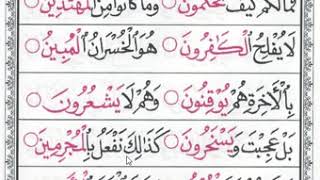 فَمَالَكُمْ كَيْفَ تَحْكُمُونَ وَمَا كَانُوا مِنَ الْمُهْتَدِينَ
لَا يُفْلِحُ الْكَافِرُونَ هُوَ الْخُسْرَانُ الْمُبِينُ
بِالْأَخِرَةِ هُمْ يُوقِنُونَ وَهُمْ لَا يَشْعُرُونَ
بَلْ عَجِبْتَ وَيَسْخَرُونَ كَذَلِكَ نَفْعَلُ بِالْمُجْرِمِينَ